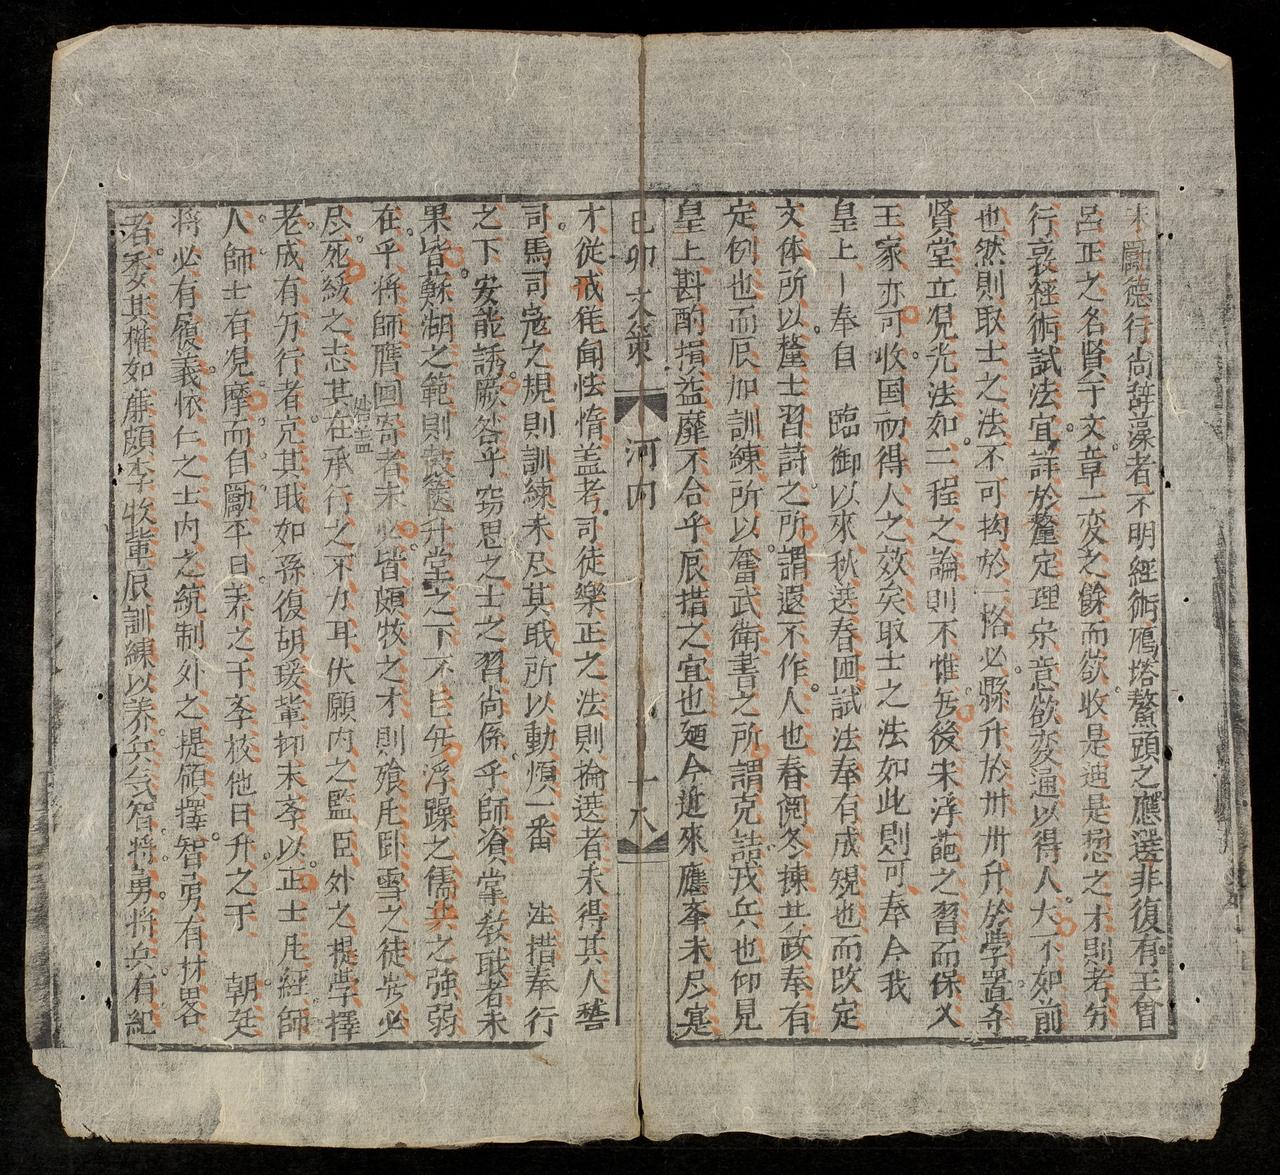 未勵德行尚辞藻者不明經術鴈塔鰲頭之應選非復有王曾
呂正之名賢于文章一変之餘而欲收是迪是愆之才則考夯
行敦經術試法宜詳於釐定理宗意欲変通以得人大不如前
也然則取士之法不可拘於一格必縣升於卅卅升於學置寺
賢堂立覌光法如二程之論則不惟旡後来浮葩之習而保乂
王家亦可收国初得人之效矣取士之法如此則可奉今我
皇上一奉自 臨御以來秋選春囬試法奉有成䂓也而改定
文体所以釐士習詩之所謂遐不作人也春閱冬揀其政奉有
定例也而辰加訓練所以奮武衛書之所謂克詰戎兵也仰見
皇上斟酌損益靡不合乎辰措之宜也廼今近來應夆未尽寔
己卯文策 河内 十八
才從戒徃闻怯惰盖考司徒樂正之法則掄選者未得其人瞽
司馬司寇之規則訓練未尽其戢所以動煩一番 法措奉行
之下安能誘厥咎乎窃思之士之習尚係乎師資掌教戢者未
果皆蘇湖之範則皷篋升堂之下不旨旡浮躁之儒兵之強弱
在乎將師膺囬寄者未必皆頗牧之才則飱凧卧雪之徒岂必
尽死綏之志其在承行之不力耳伏願内之監臣外之提學擇
老成有夯行者克其戢如孫復胡瑗軰抑末夆以正士凧經師
人師士有覌摩而自勵平日养之于夆校他日升之于 朝廷
将必有履義依仁之士内之統制外之提領擇智勇有材畧
者委其權如亷頗李牧軰辰訓練以养兵气智將勇將兵有紀